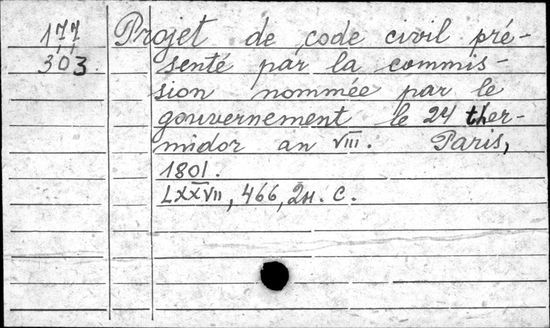 177 Projet de code civil pré-
303. senté par la commis-
sion nommée par le
gouvernement le 24 ther-
midor an VIII. Paris,
1801.
LXXVII, 466, 2н. с.